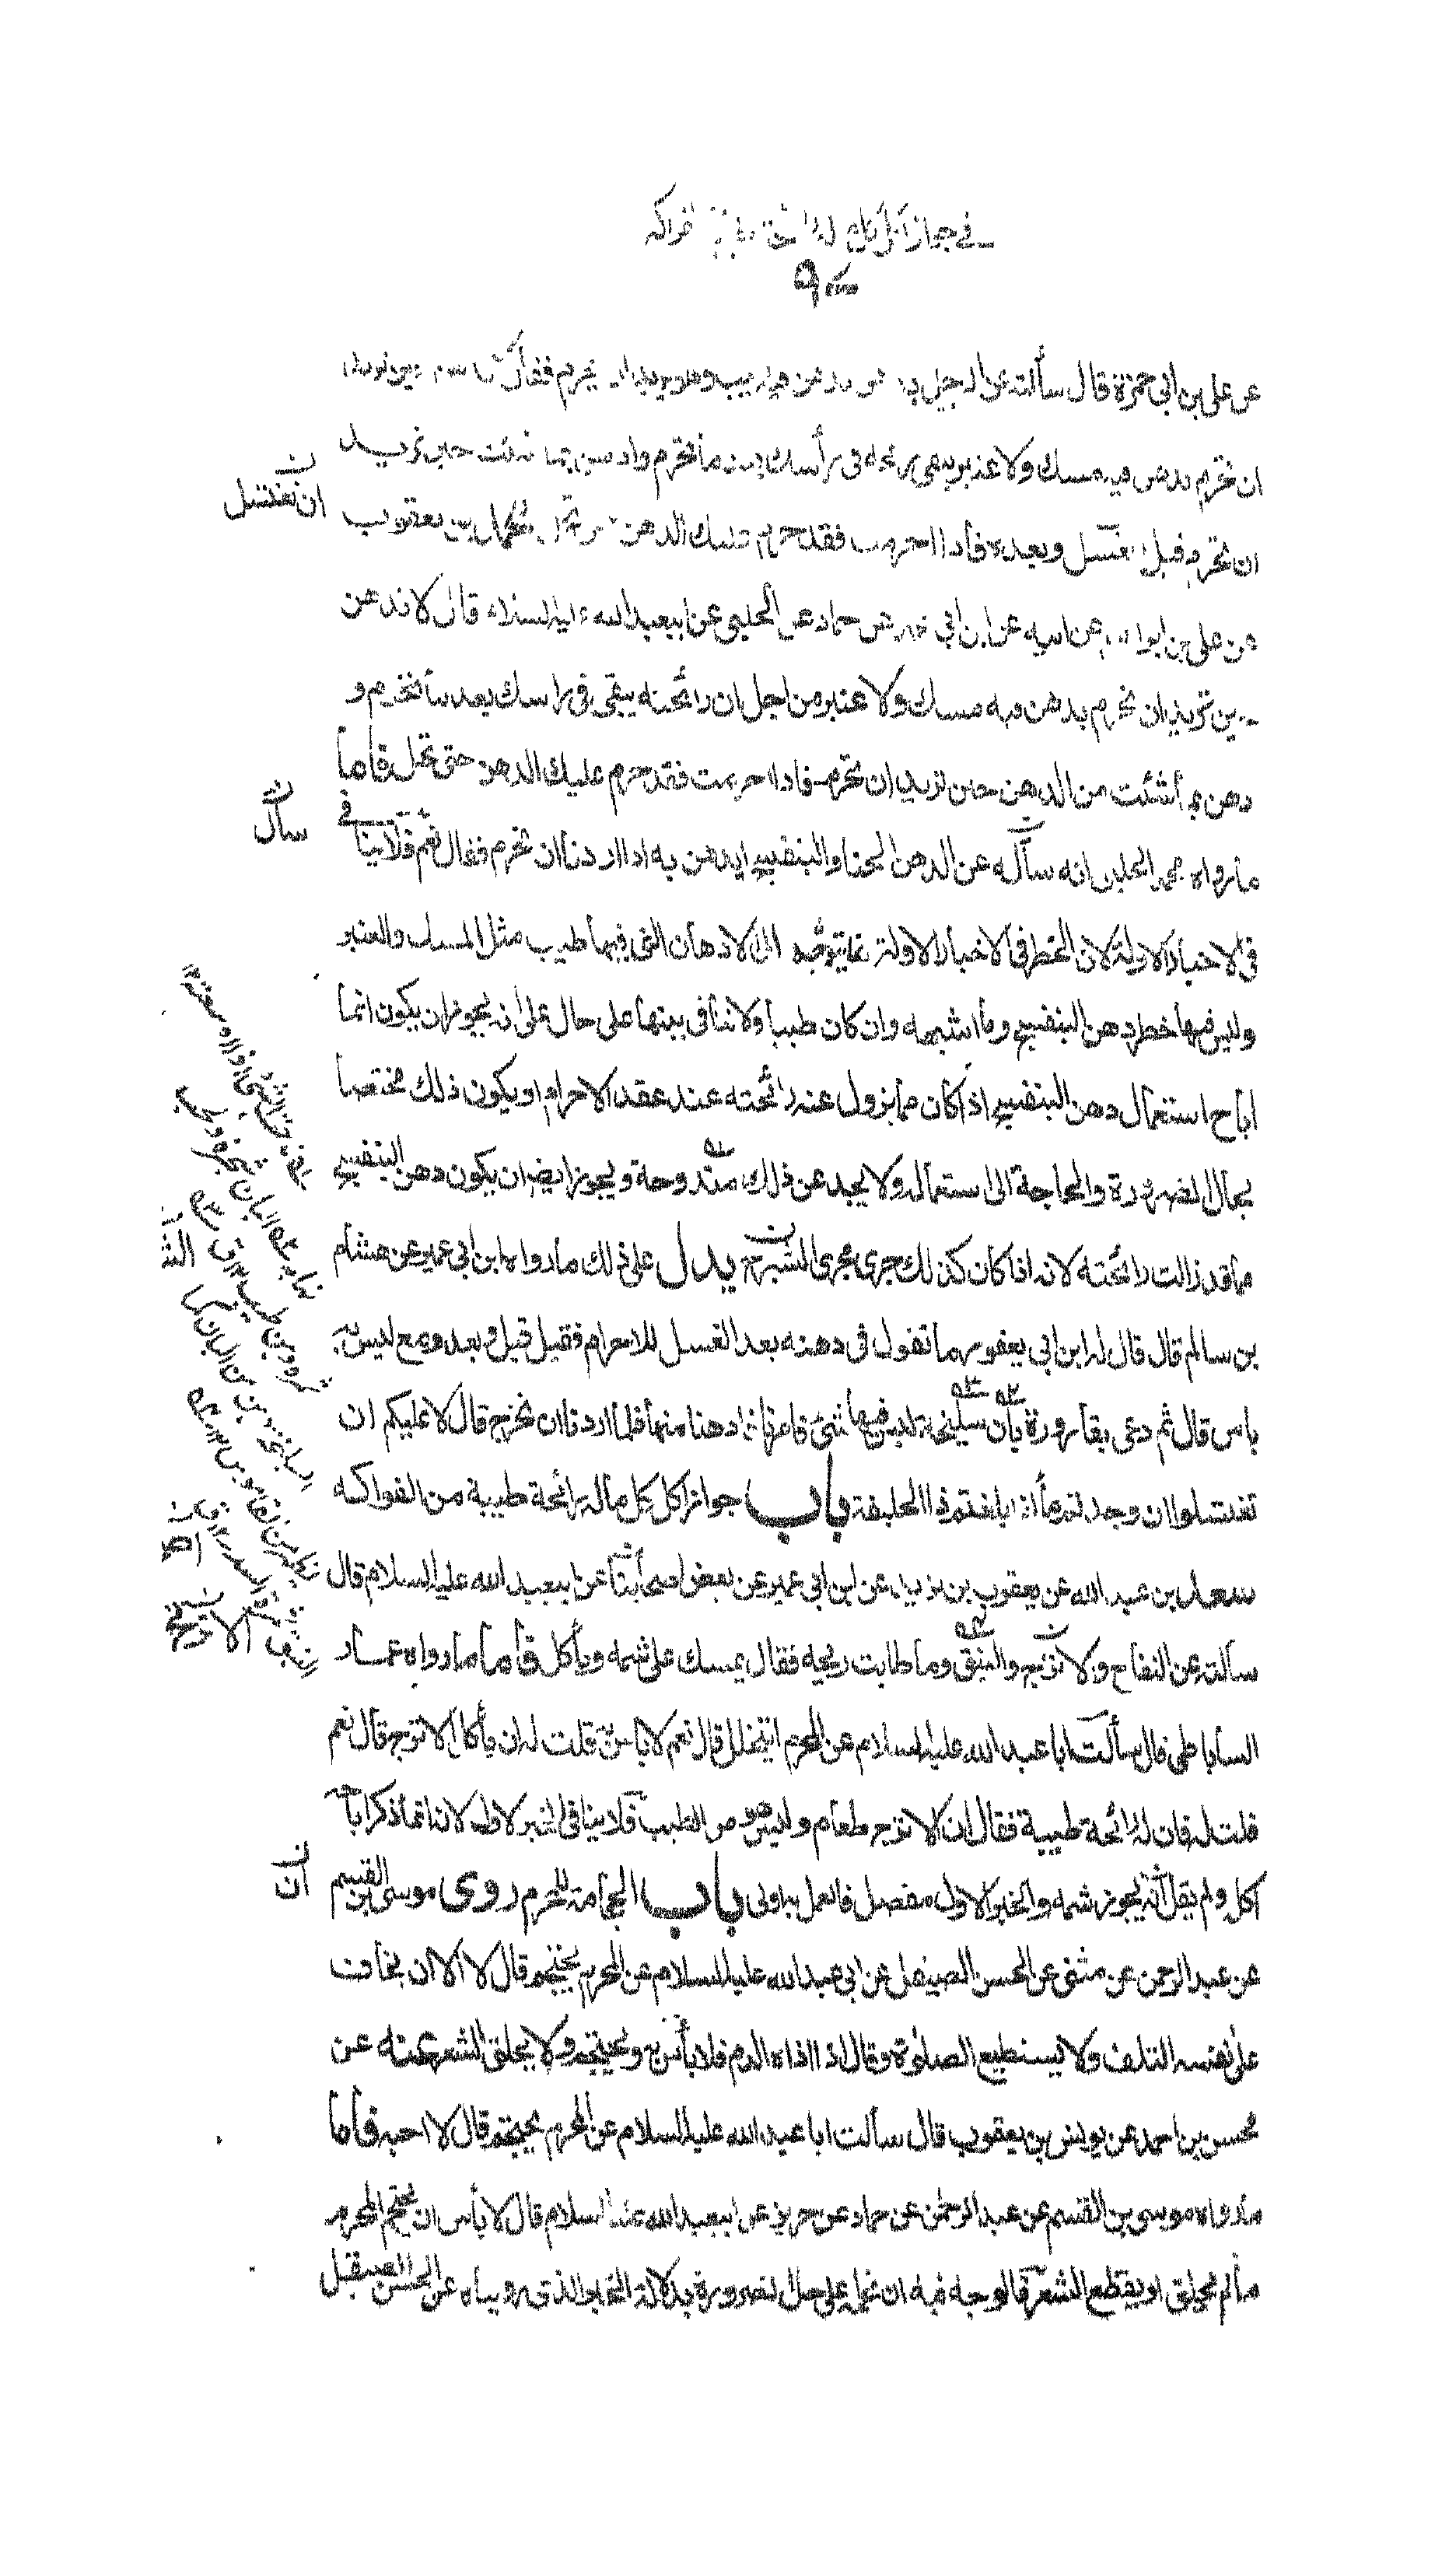 في جواز اكل ماله رائحة طيبة من الفواكه
عن علي بن ابي حمزة قال سألته عن الرجل يدهن بدهن فيه طيب وهو يريد ان يحرم فقال لا تدهن حين تريد
ان تحرم بدهن فيه مسك ولا عنبر يبقى ريحه في رأسك بعد ما تحرم وادهن بما شئت حين تريد
ان تحرم قبل الغسل وبعده فاذا احرمت فقد حرم عليك الدهن حتى تحل محمد بن يعقوب
عن علي بن ابراهيم عن ابيه عن ابن ابي عمير عن حماد عن الحلبي عن ابيعبد الله عليه السلام قال لا تدهن
حين تريد ان تحرم بدهن فيه مسك ولا عنبر من اجل ان رائحته يبقى في راسك بعد ما تحرم و
دهن بما شئت من الدهن حين تريد ان تحرم فاذا احرمت فقد حرم عليك الدهن حتى تحل فاما
ما رواه محمد الحلبي انه سأله عن الدهن الحنا والبنفسج ايدهن به اذا اردنا ان نحرم فقال نعم فلا ينافي
في الاخبار الاولة لان الحظر في الاخبار الاولة انما يتوجه الى الادهان التي فيها طيب مثل المسك والعنبر
وليس فيها حظر دهن البنفسج وما اشبهه وان كان طيبا ولا تنافي بينها على حال على انه يجوز ان يكون انما
اباح استعمال دهن البنفسج اذا كان مما يزول عنه رائحته عند عقد الاحرام او يكون ذلك مختصا
بحال الضرورة والحاجة الى استعماله ولا يجد عن ذلك مندوحة ويجوز ايضا ان يكون دهن البنفسج
مما قد زالت رائحته لانه اذا كان كذلك جرى مجرى الشيرج يدل على ذلك ما رواه ابن ابي عمير عن هشام
بن سالم قال قال له ابن ابي يعفور ما تقول في دهنه بعد الغسل للاحرام فقيل قبل وبعد ومع ليس به
باس قال ثم دعى بقارورة بان سليخة ليس فيها شئ فامرنا فادهنا منها فلما اردنا ان نخرج قال لا عليكم ان
تغتسلوا ان وجدتم ماء اذا بلغتم ذا الحليفة باب جواز اكل كل ماله رائحة طيبة من الفواكه
سعد بن عبد الله عن يعقوب بن يزيد عن ابن ابي عمير عن بعض اصحابنا عن ابيعبد الله عليه السلام قال
سألته عن التفاح والاترنج والنبق وما طابت ريحه فقال يمسك على شمه ويأكل فأما ما رواه عمار
الساباطي قال سألت ابا عبد الله عليه السلام عن المحرم ايتخلل قال نعم لا باس به قلت له ان يأكل الاترج قال نعم
قلت له فان له رائحة طيبة فقال ان الاترج طعام وليس هو من الطيب فلا ينافي الخبر الاول لانه انما ذكر اباحة
اكله ولم يقل انه يجوز شمه والخبر الاول مفصل فالعمل به اولى باب الحجامة للمحرم روى موسى بن القسم
عن عبد الرحمن عن مثنى عن الحسن الصيقل عن ابي عبد الله عليه السلام عن المحرم يحتجم قال لا الا ان يخاف
على نفسه التلف ولا يستطيع الصلوة وقال اذا اذاه الدم فلا بأس به ويحتجم ولا يحلق الشعر عنه عن
محسن بن احمد عن يونس بن يعقوب قال سألت ابا عبد الله عليه السلام عن المحرم يحتجم قال لا احبه فأما
ما رواه موسى بن القسم عن عبد الرحمن عن حماد عن حريز عن ابيعبد الله عليه السلام قال لا بأس ان يحتجم المحرم
ما لم يحلق او يقطع الشعر فالوجه فيه ان نحمله على حال الضرورة بدلالة الخبر الذي رويناه عن الحسن الصيقل
ان تغتسل
سأل
ان